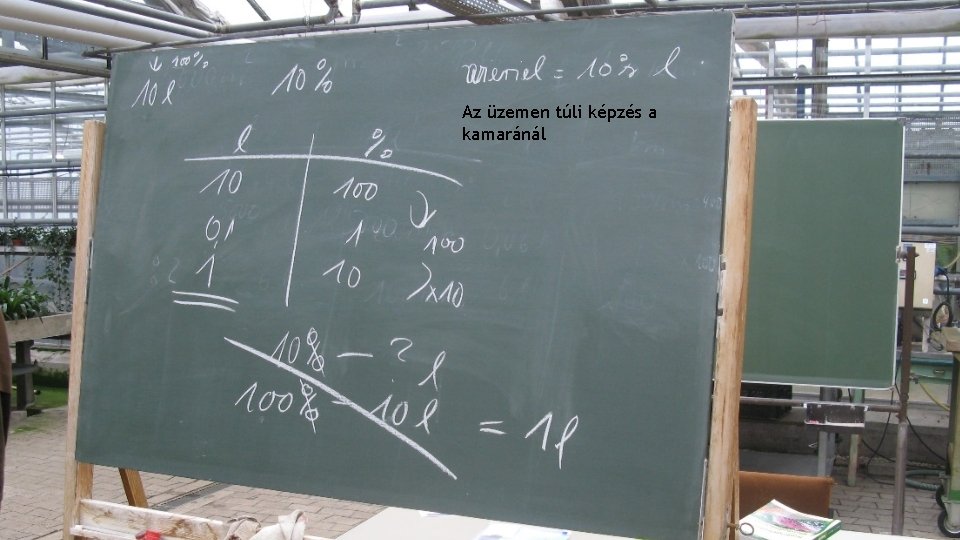 ↓ 100%
10 l 10 % = 10% l
Az üzemen túli képzés a
kamaránál
l %
10 100
0,1 1 100
1 10 x10
10% – ? l
100% – 10 l = 1l